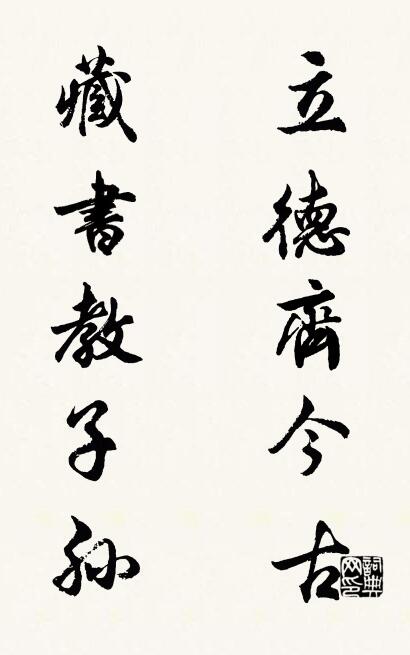 立德齊今古
藏書教子孫
詞典网